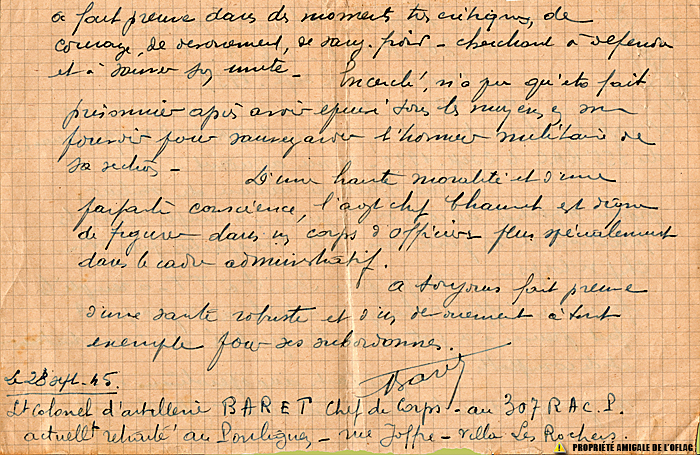 a fait preuve dans des moments très critiques, de
courage, de dévouement, de sang-froid - cherchant à défendre
et à sauver son unité - Encerclé, n'a pu qu'être fait
prisonnier après avoir épuisé tous les moyens en son
pouvoir pour sauvegarder l'honneur militaire de
sa section -
D'une haute moralité et d'une
parfaite conscience, l'adjt chef est digne
de figurer dans un corps d'officiers plus spécialement
dans le cadre administratif.
A toujours fait preuve
d'une santé robuste et d'un dévouement à tout
exemple pour ses subordonnés.
Baret
le 28 sept. 45.
Lt Colonel d'artillerie BARET Chef de Corps - au 307 R.A.C.P.
actuellt retraité au Pouliguen - rue Joffre - Villa Les Rochers.
PROPRIÉTÉ AMICALE DE L'OFLAG